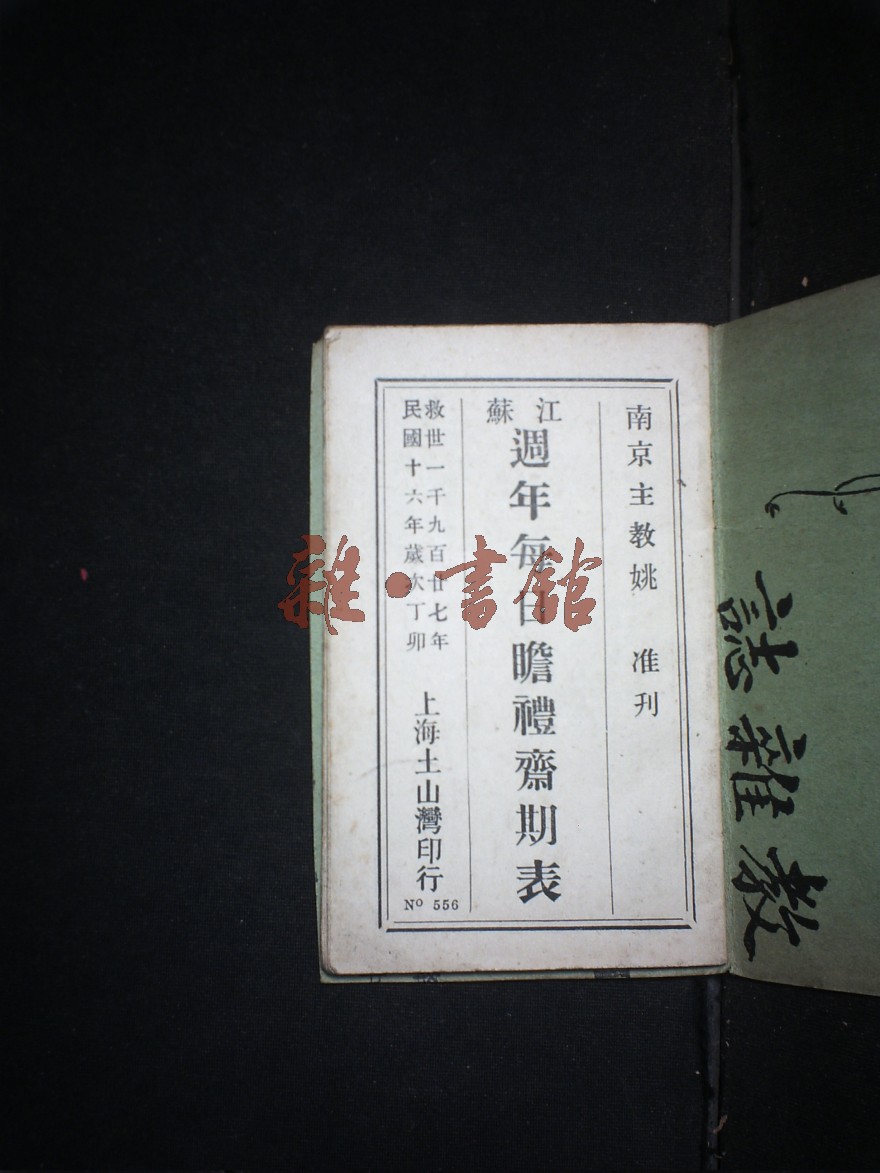 南京主教姚 准刊
江蘇
週年每日瞻禮齋期表
救世一千九百廿七年
民國十六年歲次丁卯
上海土山灣印行
Nº 556
雜·書館
教雜誌